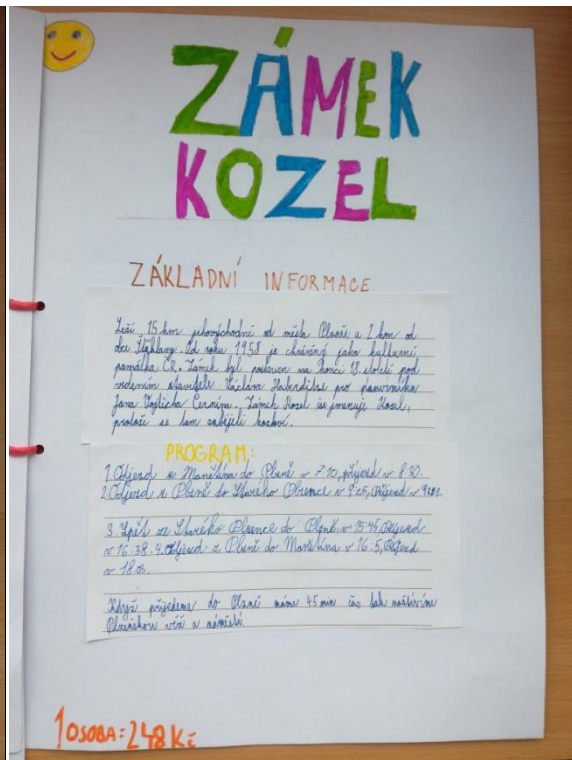 ZÁMEK
KOZEL
ZÁKLADNÍ INFORMACE
Leží 15 km jihovýchodně od města Plzně a 2 km od
obce Šťáhlavy. Od roku 1958 je chráněný jako kulturní
památka ČR. Zámek byl postaven na konci 18. století pod
vedením stavitele Václava Haberditze pro
Jana Vojtěcha Černína. Zámek Kozel se jmenuje Kozel,
protože se tam zabíjeli kozlové.
PROGRAM:
1. Odjezd z Manětína do Plzně v 7:10, příjezd v 8:30.
2. Odjezd z Plzně do Starého Plzence v 9:05, Příjezd v
3. Zpět ze Starého Plzence do Plzně v 15:45, Příjezd
v 16:38. 4. Odjezd z Plzně do Manětína v 16:5, Příjezd
v 18:03.
Když přijedeme do Plzně máme 45 min čas tak navštívíme
Plzeňskou věž a náměstí.
1 OSOBA = 248 Kč